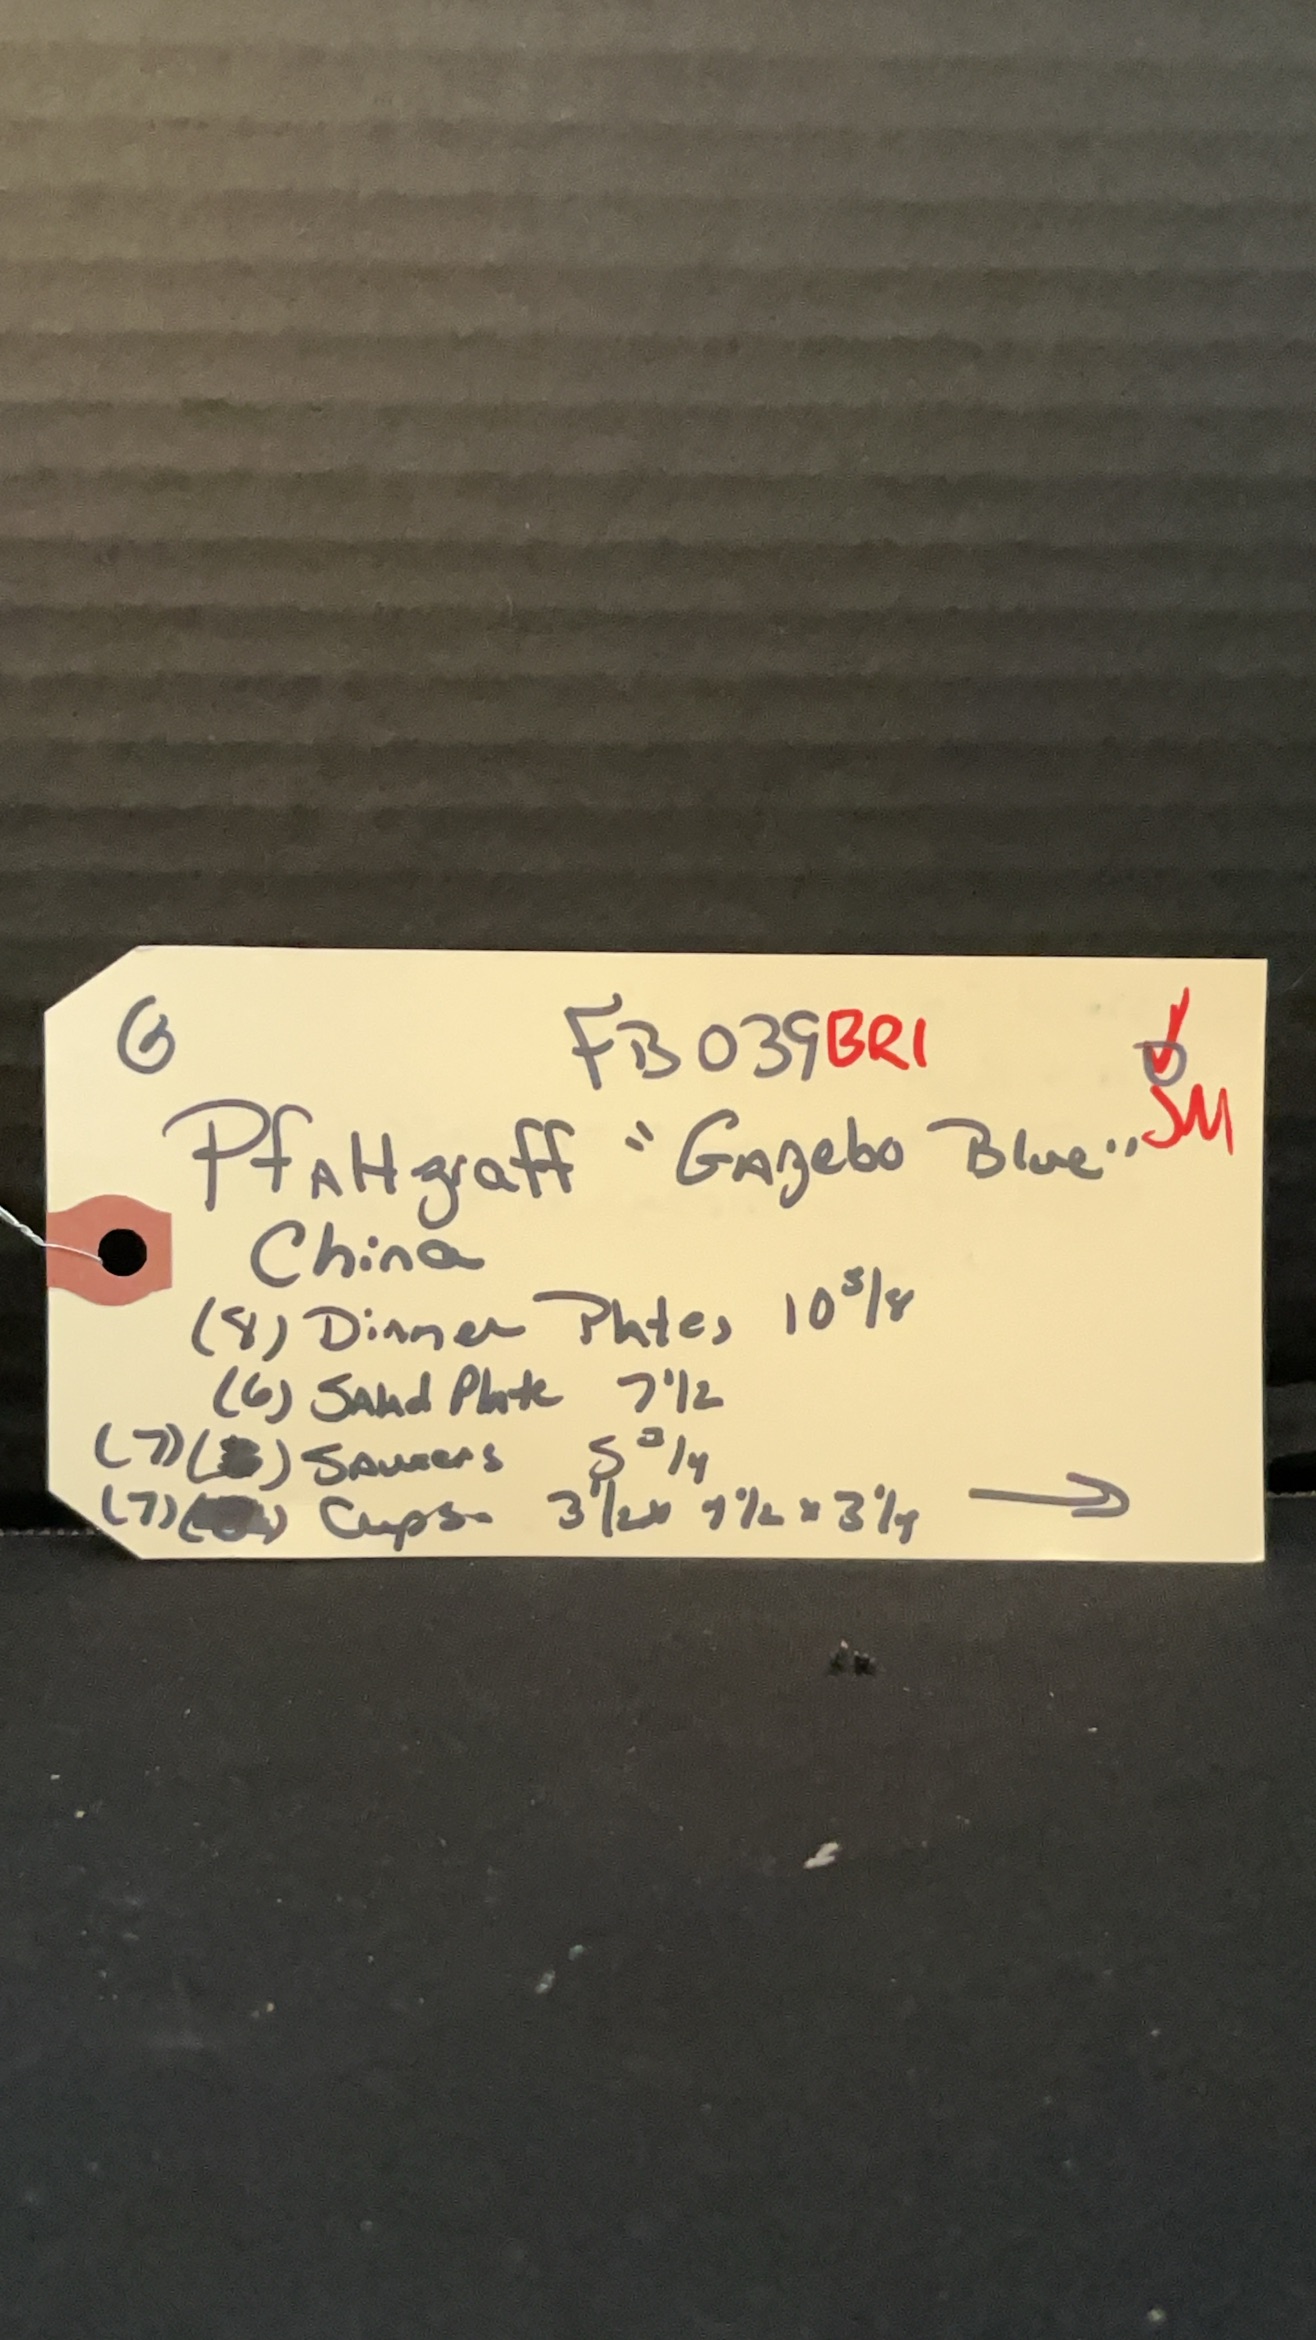 G FB039BRI
JM
Pfaltzgraff "Gazebo Blue"
China
(8) Dinner Plates 10 5/8
(6) Salad Plate 7 1/2
(7) Saucers 5 3/4
(7) Cups 3 1/2 x 4 1/2 x 3 1/4 →